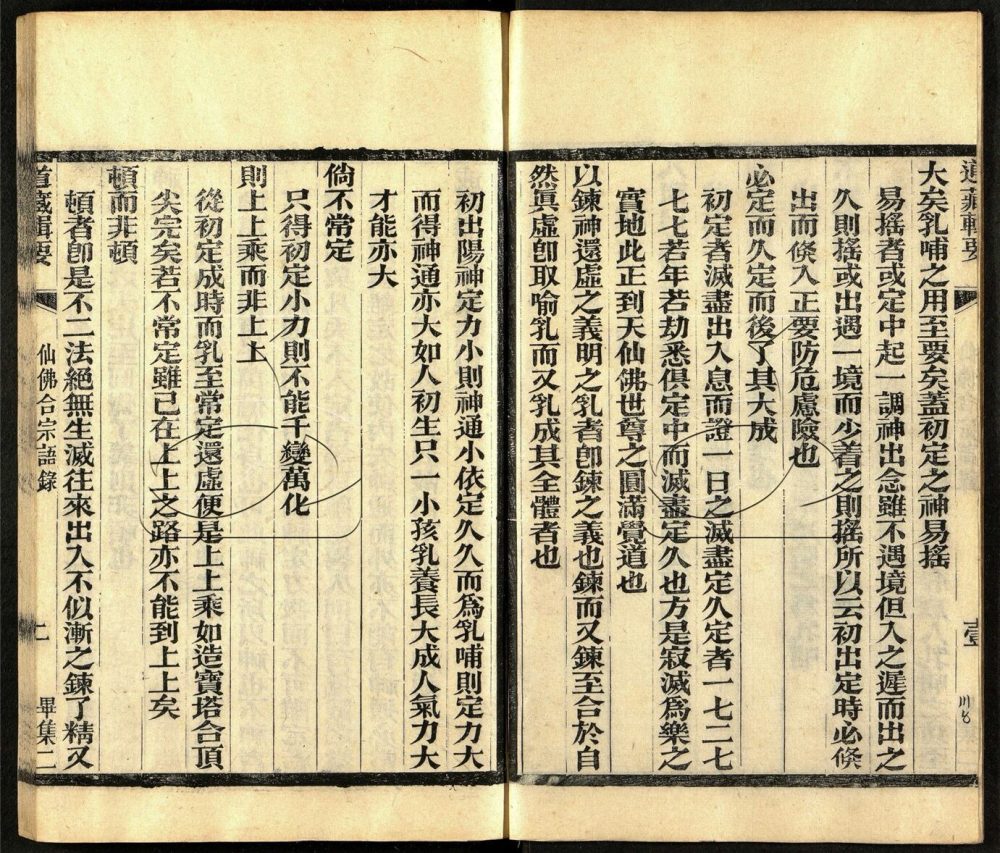 道藏輯要
壹
大矣乳哺之用至要矣蓋初定之神易搖
易搖者或定中起一調神出念雖不遇境但入之遲而出之
久則搖或出遇一境而少着之則搖所以云初出定時必倐
出而倐入正要防危慮險也
必定而久定而後了其大成
初定者滅盡出入息而證一日之滅盡定久定者一七二七
七七若年若劫悉俱定中而滅盡定久也方是寂滅為樂之
實地此正到天仙佛世尊之圓滿覺道也
以鍊神還虛之義明之乳者卽鍊之義也鍊而又鍊至合於自
然眞虛卽取喻乳而又乳成其全體者也
初出陽神定力小則神通小依定久久而為乳哺則定力大
而得神通亦大如人初生只一小孩乳養長大成人氣力大
才能亦大
倘不常定
只得初定小力則不能千變萬化
則上上乘而非上上
從初定成時而乳至常定還虛便是上上乘如造寶塔合頂
尖完矣若不常定雖已在上上之路亦不能到上上矣
頓而非頓
頓者卽是不二法絕無生滅往來出入不似漸之鍊了精又
道藏輯要 仙佛合宗語錄 二 畢集二